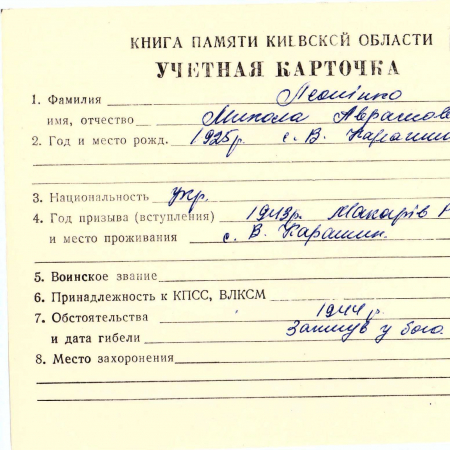 КНИГА ПАМЯТИ КИЕВСКОЙ ОБЛАСТИ
УЧЕТНАЯ КАРТОЧКА
1. Фамилия
имя, отчество Микола
2. Год и место рожд. 1925р. с. В. Карашин
3. Национальность укр.
4. Год призыва (вступления) 1943р. Макарів Р
и место проживания с. В. Карашин.
5. Воинское звание
6. Принадлежность к КПСС, ВЛКСМ
7. Обстоятельства 1944 р.
и дата гибели Загинув у бою.
8. Место захоронения